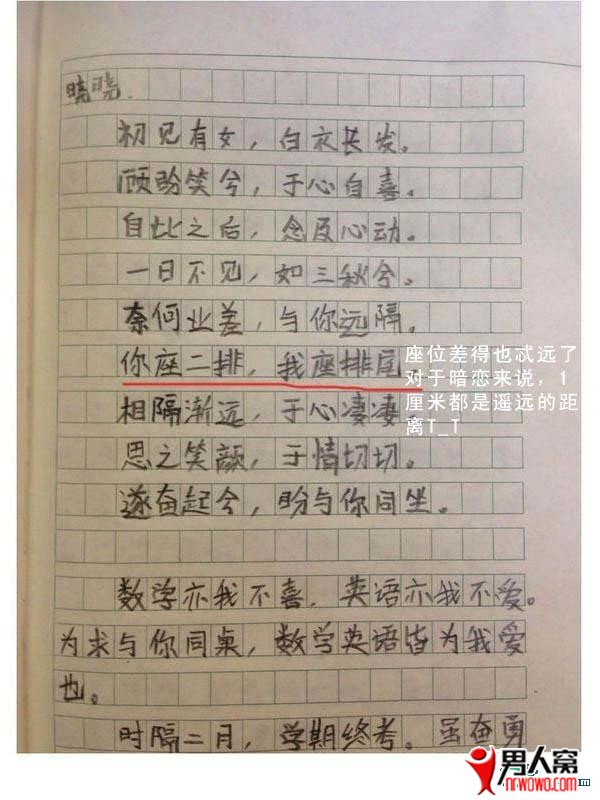 晓晓.
初见有女，白衣长发。
顾盼笑兮，于心自喜。
自此之后，念及心动。
一日不见，如三秋兮。
奈何业差，与你远隔。
你座二排，我座排尾。
座位差得也忒远了
对于暗恋来说，1
厘米都是遥远的距
离T_T
相隔渐远，于心凄凄。
思之笑颜，于情切切。
遂奋起兮，盼与你同坐。
数学亦我不喜，英语亦我不爱。
为求与你同桌，数学英语皆为我爱
也。
时隔二月，学期终考。虽奋勇
男人窝
nrwowo.com